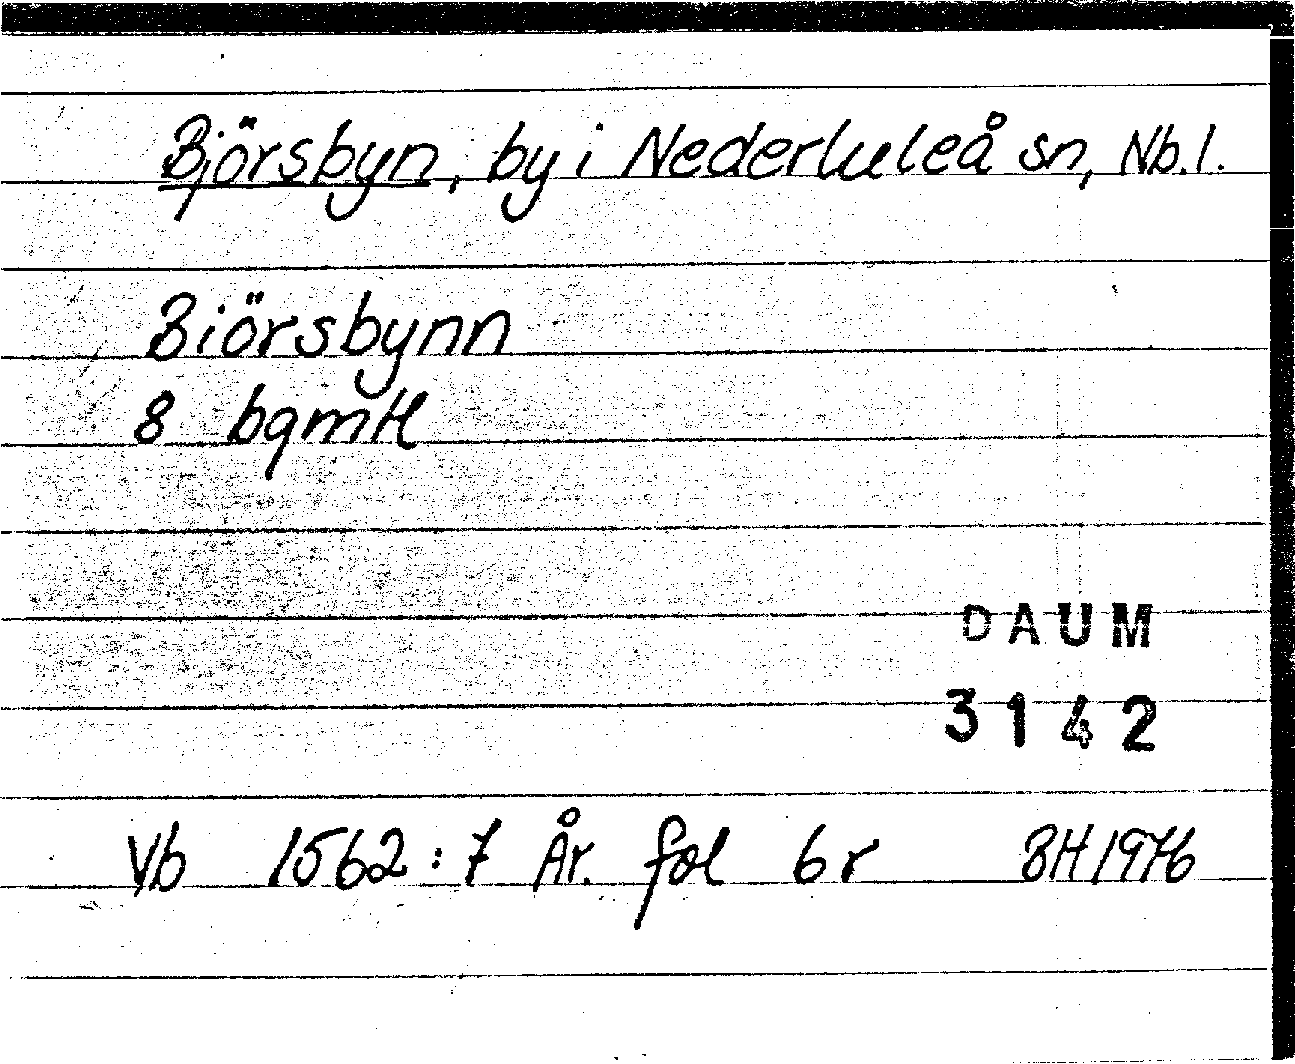 Björsbyn, by i Nederluleå sn, Nb.l.
Biörsbynn
8 bgmtl
DAUM
3142
Vb 1562:7 År. fol 6r BH 1976